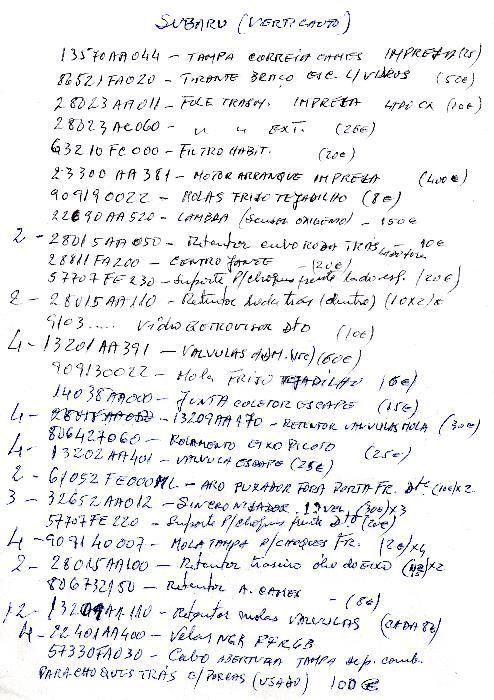 SUBARU (VERTICAUTO)
13570AA044 - TAMPA CORREIA CAMES IMPREZA (25)
86521FA020 - TIRANTE BRAÇO ESC. L/VIDROS (50€)
28023AA011 - FOLE TRASM. IMPREZA LADO CX (10€)
28023AC060 - " " EXT. (26€)
G3210FC000 - FILTRO HABIT. (20€)
23300AA381 - MOTOR ARRANQUE IMPREZA (400€)
909190022 - MOLAS FRISO TEJADILHO (8€)
22690AA520 - LAMBDA (SENSOR OXIGENIO) - 150€
2 - 28015AA050 - Retentor cubo RODA TRÁS LADO fora 10€
28811FA200 - CENTRO JANTE - (20€)
57707FE230 - Suporte P/choques frente lado esq. (20€)
2 - 28015AA110 - Retentor roda tras (dentro) (10x2)€
9103..... Vidro RETROVISOR DTO (10€)
4 - 13201AA391 - VALVULAS ADM. (15€) (60€)
909130022 - Mola FRISO TEJADILHO (6€)
14038AA000 - JUNTA COLETOR ESCAPE (15€)
4 - 13209AA170 - RETENTOR VALVULAS MOLA (30€)
806427060 - ROLAMENTO EIXO PILOTO (25€)
4 - 13202AA401 - VALVULA ESCAPE (25€)
2 - 61052FE000ML - ARO PUXADOR FORA PORTA FR. Dtº (10€)x2
3 - 32652AA012 - SINCRONIZADOR 1ªVEL. (30€)x3
57707FE220 - Suporte P/choques frente Dtº (20€)
4 - 909140007 - MOLA TAMPA P/CHOQUES FR. (2€)x4
2 - 28015AA100 - Retentor traseiro óleo do EIXO x2
806732150 - Retentor A. CAMES - (8€)
12 - 13209AA110 - Retentor molas VALVULAS (CADA 8€)
4 - 22401AA400 - Velas NGK PFR6B
57330FA030 - Cabo ABERTURA TAMPA dep. comb.
PARACHOQUES TRÁS C/PORCAS (USADO) 100€